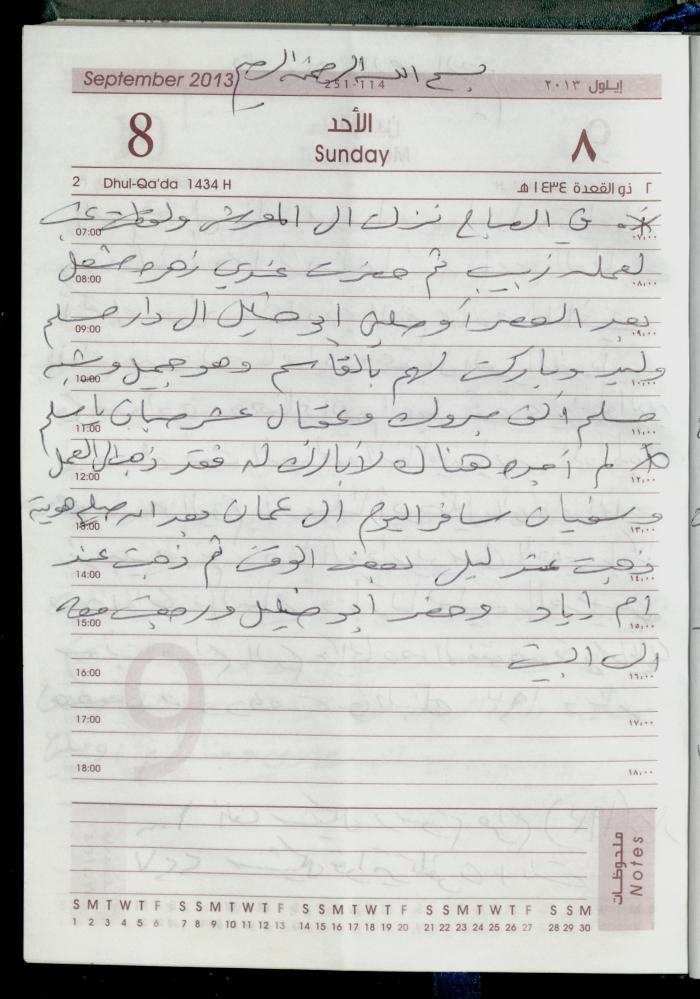 بسم الله الرحمن الرحيم
September 2013 251-114 إيلول ٢٠١٣
8 الأحد ٨
Sunday
2 Dhul-Qa'da 1434 H ٢ ذو القعدة ١٤٣٤ هـ
* في الصباح نزلت الى المعرش ولقطت عنب
07:00 ٠٧,٠٠
لعمله زبيب ثم حضرت عندي زهره مشعل
08:00 ٠٨,٠٠
بعد العصر أوصلني ابو خليل الى دار
09:00 ٠٩,٠٠
وليد وباركت لهم بالقاسم وهو جميل وشبه
10:00 ١٠,٠٠
الف مبروك وعقبال عشر صبيان يا
11:00 ١١,٠٠
* لم أجده هناك لأبارك له فقد ذهب الى العمل
12:00 ١٢,٠٠
وسفيان سافر اليوم الى عمان بعد ان هويته
13:00 ١٣,٠٠
ذهبت عند ليلى بعض الوقت ثم ذهبت عند
14:00 ١٤,٠٠
ام اياد وحضر أبو خليل ورجعت معه
15:00 ١٥,٠٠
الى البيت
16:00 ١٦,٠٠
17:00 ١٧,٠٠
18:00 ١٨,٠٠
ملحوظات
Notes
S M T W T F S S M T W T F S S M T W T F S S M T W T F S S M
1 2 3 4 5 6 7 8 9 10 11 12 13 14 15 16 17 18 19 20 21 22 23 24 25 26 27 28 29 30